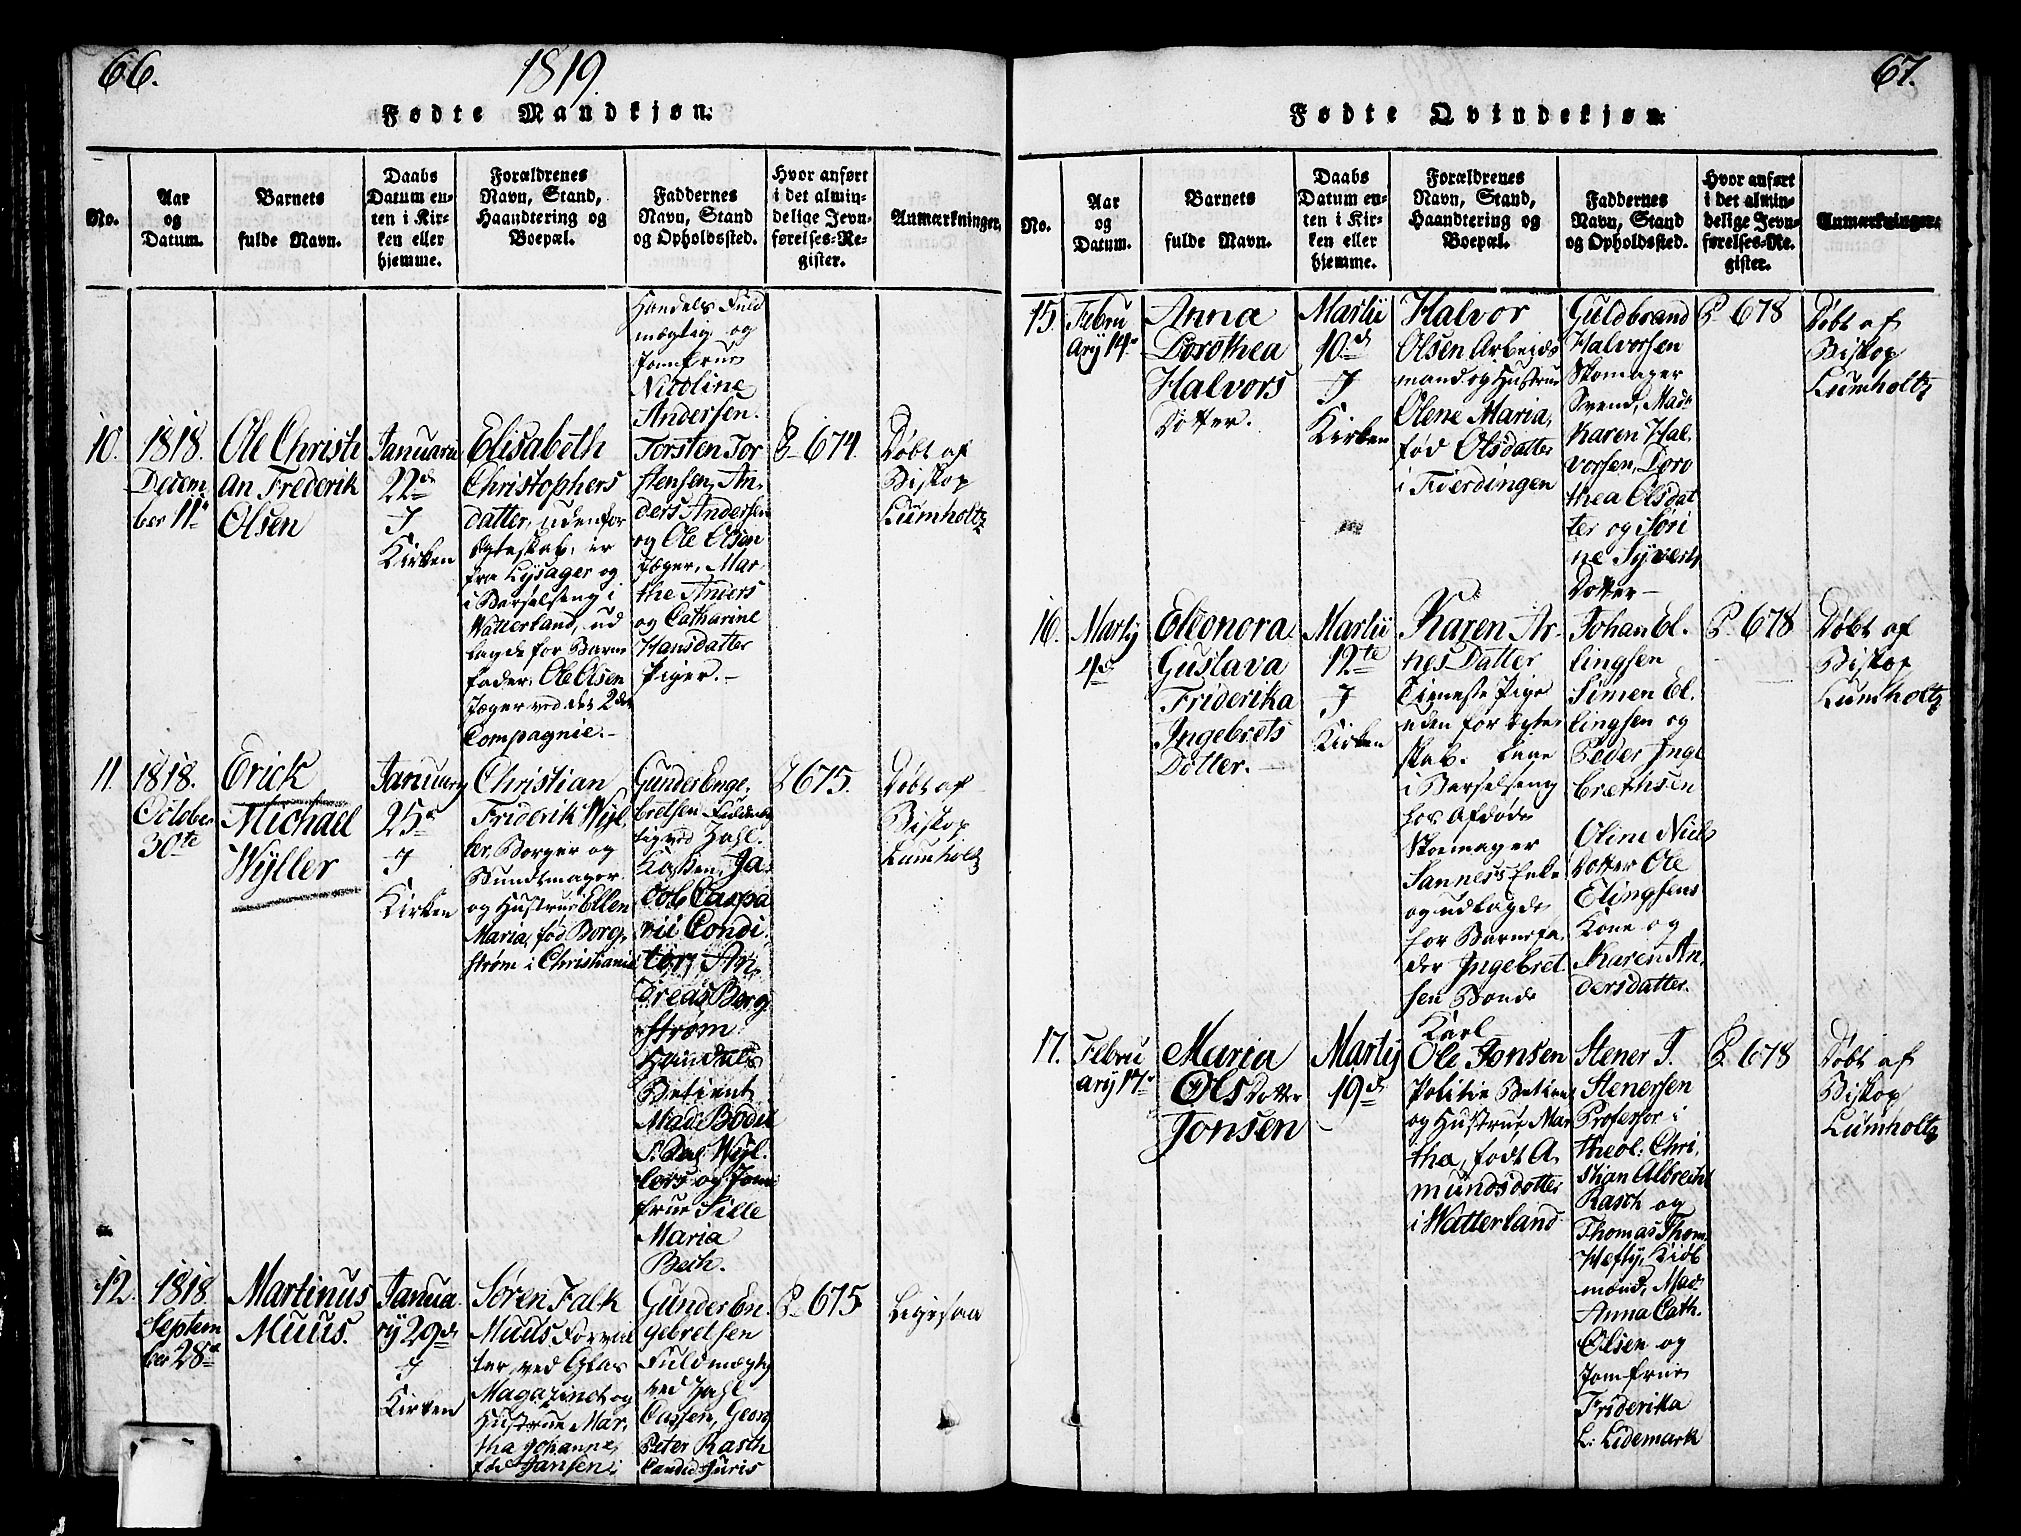 66.
1819.
Fødte Mandkjøn:
No.
Aar
og
Datum.
Barnets
fulde Navn.
Daabs
Datum en-
ten i Kir-
ken eller
hjemme.
Forældrenes
Navn, Stand,
Haandtering og
Boepæl.
Faddernes
Navn, Stand
og Opholdssted.
Hvor anført
i det almin-
delige Jevn-
førelses-Re-
gister.
Anmærkninger.
Handels Fuld
mægtig og
Jomfrue
Nicoline
Andersen.
10.
1818.
Decem
ber 11te
Ole Christi
an Frederik
Olsen
Januarii
22de
I
Kirken
Elisabeth
Christophers
datter, udenfor
Egteskab, er
fra Lysager og
i Barselseng i
Watterland, ud
lagde for Barne
fader, Ole Olsen
Jæger ved det 2det
Compagnie.-
Torsten Tor
stensen, An-
ders Andersen
og Ole Olsen
Jæger, Mar-
the Anders
og Catharine
Hansdatter
Piger.-
P. 674.
Døbt af
Biskop
Lumholtz
11.
1818.
October
30te
Erick
Michael
Wyller
Januarij
25de
I
Kirken
Christian
Friderik Wyl-
ler, Borger og
Bundtmager
og Hustrue Ellen
Maria, fød Borg-
strøm i Christiania
Gunder Enge-
bretsen Fuldmæg
tig ved Zahl-
Kassen, Ja-
cob Caspa
rii Condi-
tor, An-
dreas Borg-
strøm
Handels
Betient
Mad: Bodil
Wyl-
lers og Jom
frue Sille
Maria
Bech.
P 675.
Døbt af
Biskop
Lumholtz
12.
1818
Septem
ber 28de
Martinus
Muus.
Janua
rij 29de
I
Kirken
Søren Falk
Muus Forval
ter ved Glas
Magazinet og
Hustrue Mar-
tha Johanne,
fød Jansen.
Gunder En-
gebretsen
Fuldmægtig
ved Zahl
Cassen, Georg
Peter Rasch
Candid: Juris
P. 675.
Ligesaa
67.
Fødte Qvindekjøn:
No.
Aar
og
Datum.
Barnets
fulde Navn.
Daabs
Datum en-
ten i Kir-
ken eller
hjemme.
Forældrenes
Navn, Stand,
Haandtering og
Boepæl.
Faddernes
Navn, Stand
og Opholdssted.
Hvor anført
i det almin-
delige Jevn-
førelses-Re-
gister.
Anmærkninger.
15.
Febru
arij 14de
Anna
Dorothea
Halvors
Dotter.
Martii
10de
I
Kirken
Halvor
Olsen Arbeids
mand og Hustrue
Olene Maria,
fød Olsdatter
i Fierdingen
Guldbrand
Halvorsen
Skomager
Svend, Mad:
Karen Hal-
vorsen, Doro
thea Olsdat
ter og Søri
ne Syverts
Dotter-
P. 678
Døbt af
Biskop
Lumholtz
16.
Martij
4de
Eleonora
Gustava
Friderika
Ingebrets
Dotter.
Martii
12te
I
Kirken
Karen Ar-
nes Datter
Tieneste Pige
uden for Egte
skab.
i Barselseng
hos Afdøde
Skomager
Sannes's Enke
og udlagde
for Barnefa-
der Ingebret-
sen Bonde
Karl
Johan El-
lingsen
Simen El-
lingsen og
Peder Inge
brethsen
Oline Niels
dotter Ole
Elingsens
Kone og
Karen An-
dersdatter.
P. 678
Døbt af
Biskop
Lumholtz
17.
Febru
arij 17de
Maria
Olsdotter
Jonsen
Martij
19de
Ole Jonsen
Politie Betient
og Hustrue Mar
tha, født A-
mundsdotter
i Watterland
Stener J.
Stenersen
Professor i
theol: Chri-
stian Albrecht
Rasch og
Thomas Thom.
Hefty, Kiøb
mænd, Mad:
Anna Cath.
Olsen og
Jomfrue
Friderika
L: Lidemark
P. 678
Døbt af
Biskop
Lumholtz